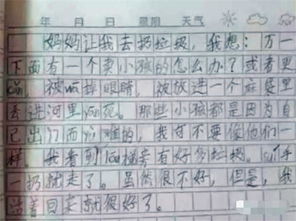 年 月 日 星期 天气
妈妈让我去扔垃圾，我想：万一
下面有一个卖小孩的怎么办？或者更
被挖掉眼睛，被放进一个麻袋里
丢进河里yan死。那些小孩都是因为自
己出门而 的，我可不要像他们一
样，我看到 有好多垃圾，sui手
一扔就走了。虽然很不好，但是，我
着回来就很好了。